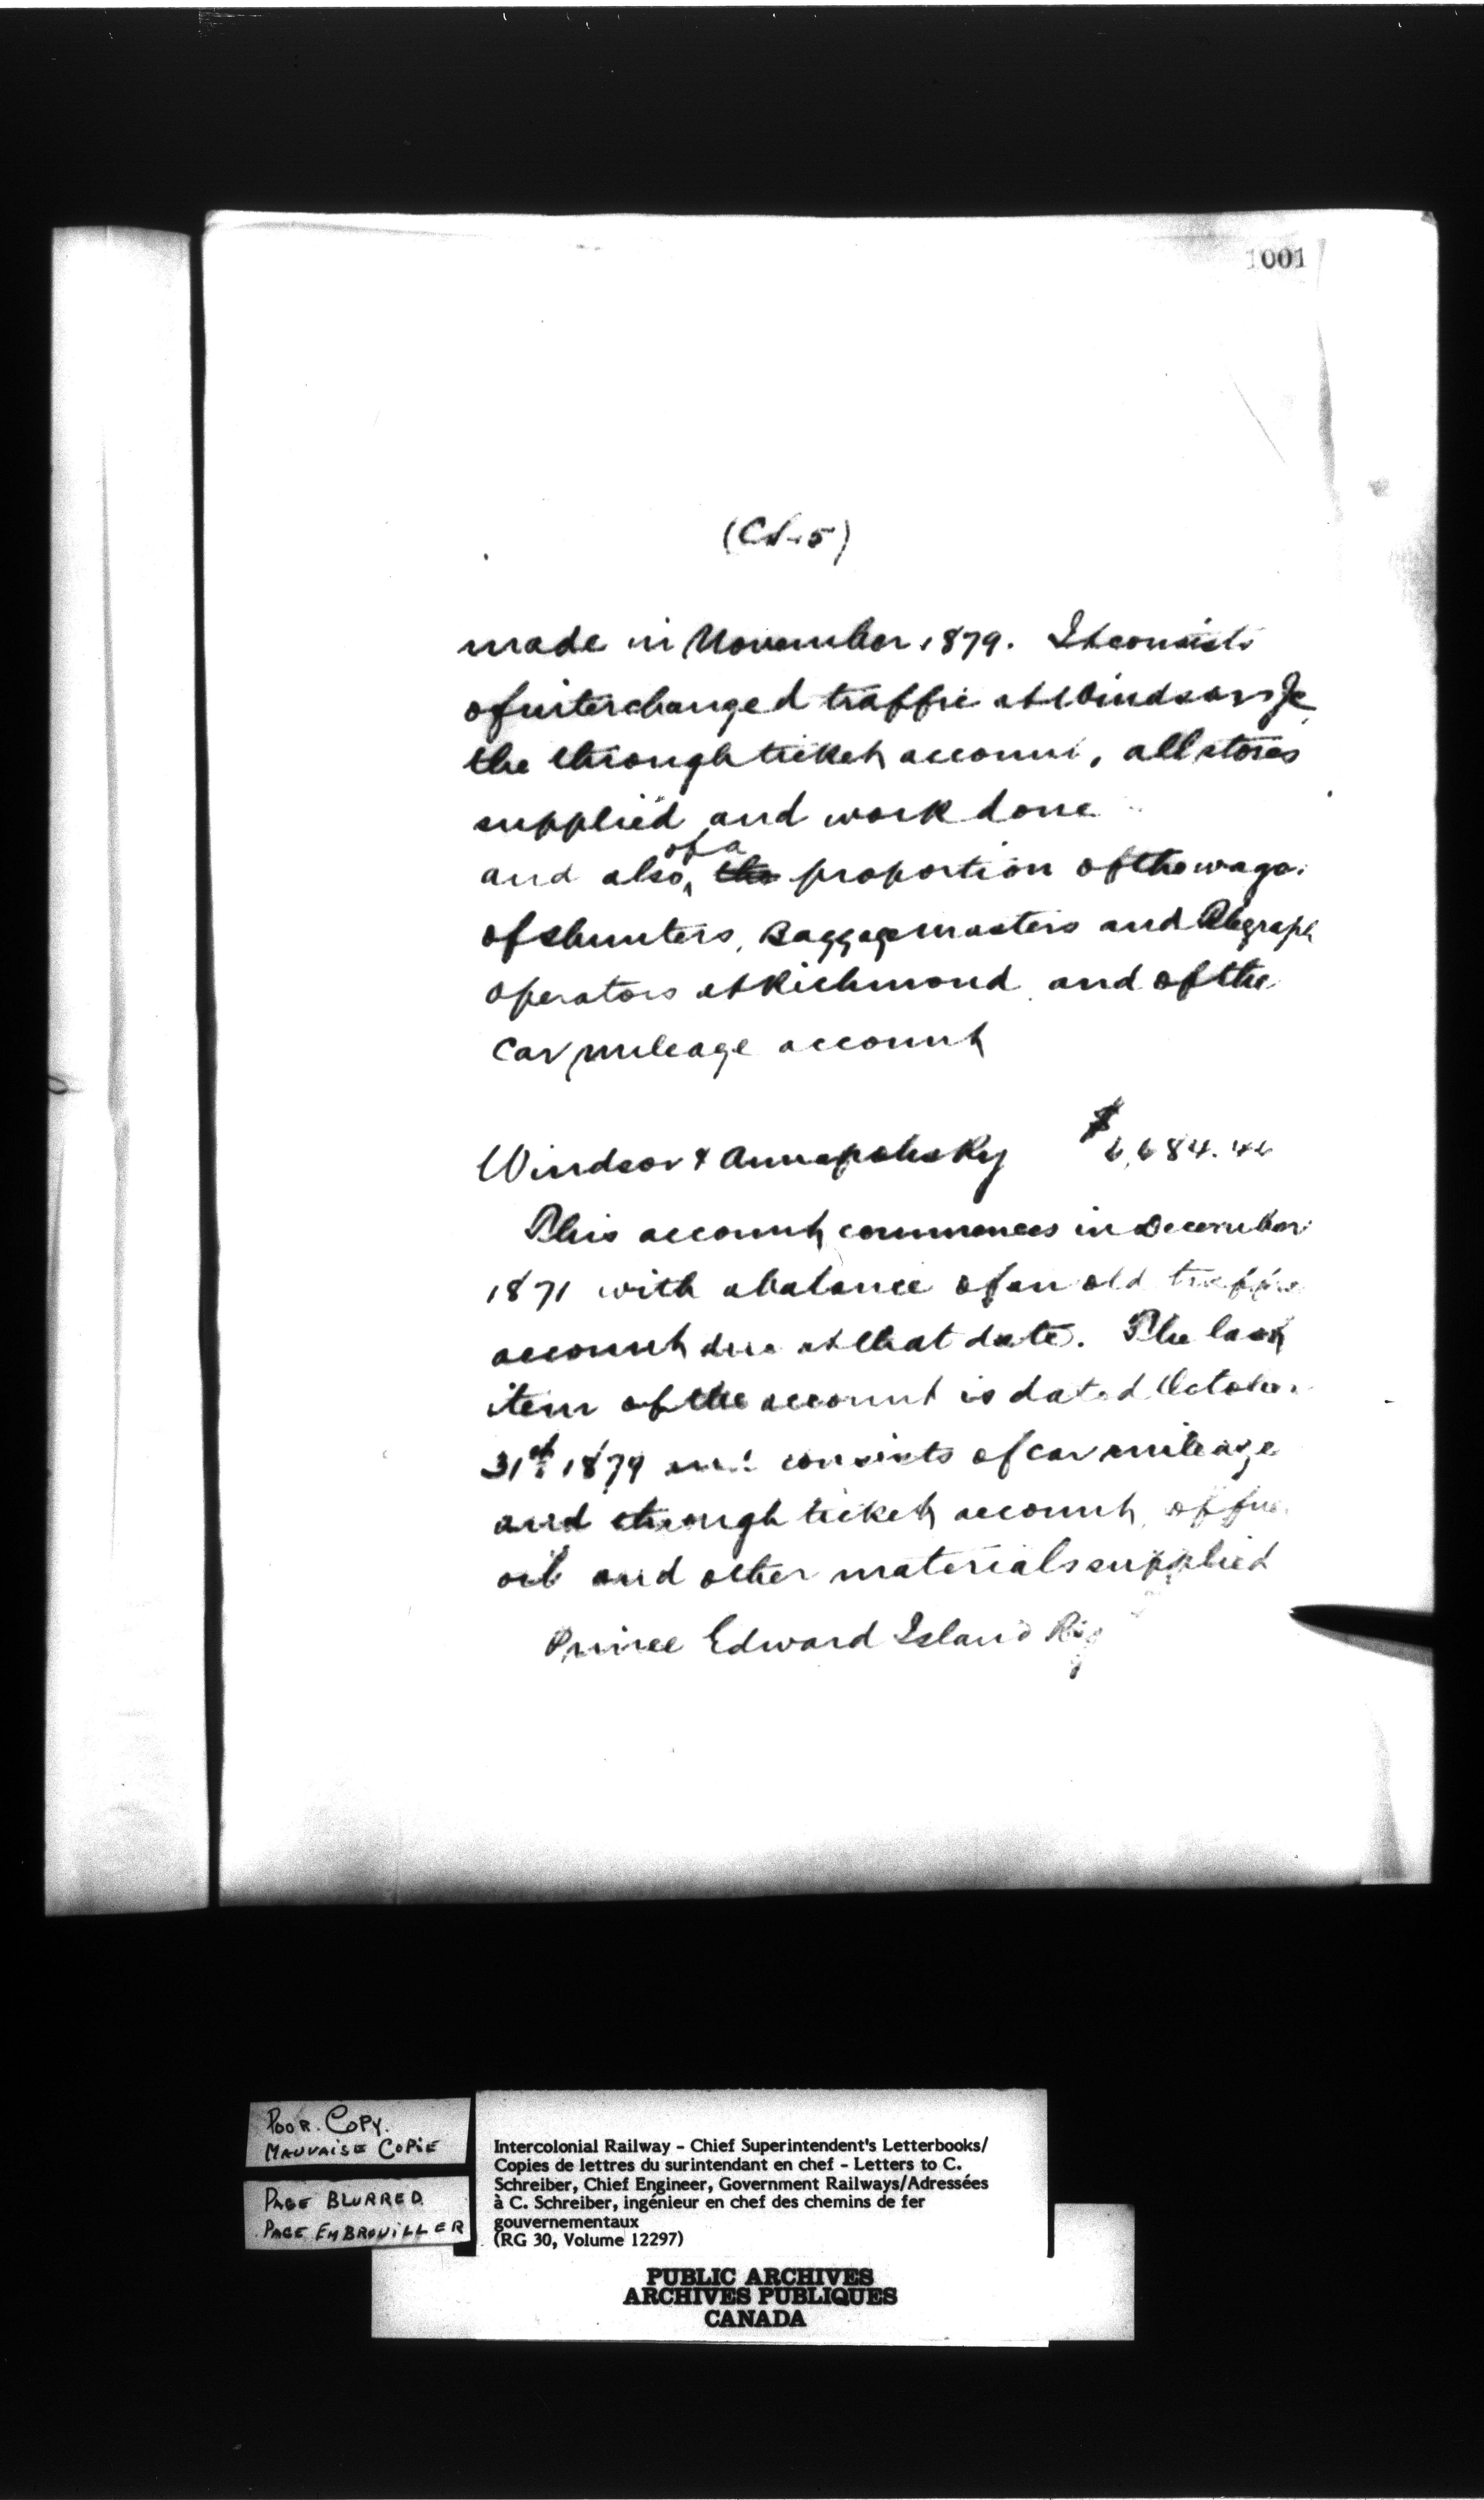 1001
(CS-5)
made in November 1879. It consists
of interchanged traffic at Windsor Jc
the through ticket account, all stores
supplied and work done
and also of a the proportion of the wage
of shunters, Baggagemasters and Telegraph
operators at Richmond and of the
Car mileage account
Windsor & Annapolis Ry $6,684.
This account commences in December
1871 with a balance of an old traffic
account due at that date. The last
item of the account is dated October
31st 1879 and consists of car mileage
and through ticket account, of
oil and other materials supplied
Prince Edward Island Ry
POOR. COPY.
MAUVAISE COPIE
PAGE BLURRED
PAGE EMBROUILLER
Intercolonial Railway - Chief Superintendent's Letterbooks/
Copies de lettres du surintendant en chef - Letters to C.
Schreiber, Chief Engineer, Government Railways/Adressées
à C. Schreiber, ingénieur en chef des chemins de fer
gouvernementaux
(RG 30, Volume 12297)
PUBLIC ARCHIVES
ARCHIVES PUBLIQUES
CANADA